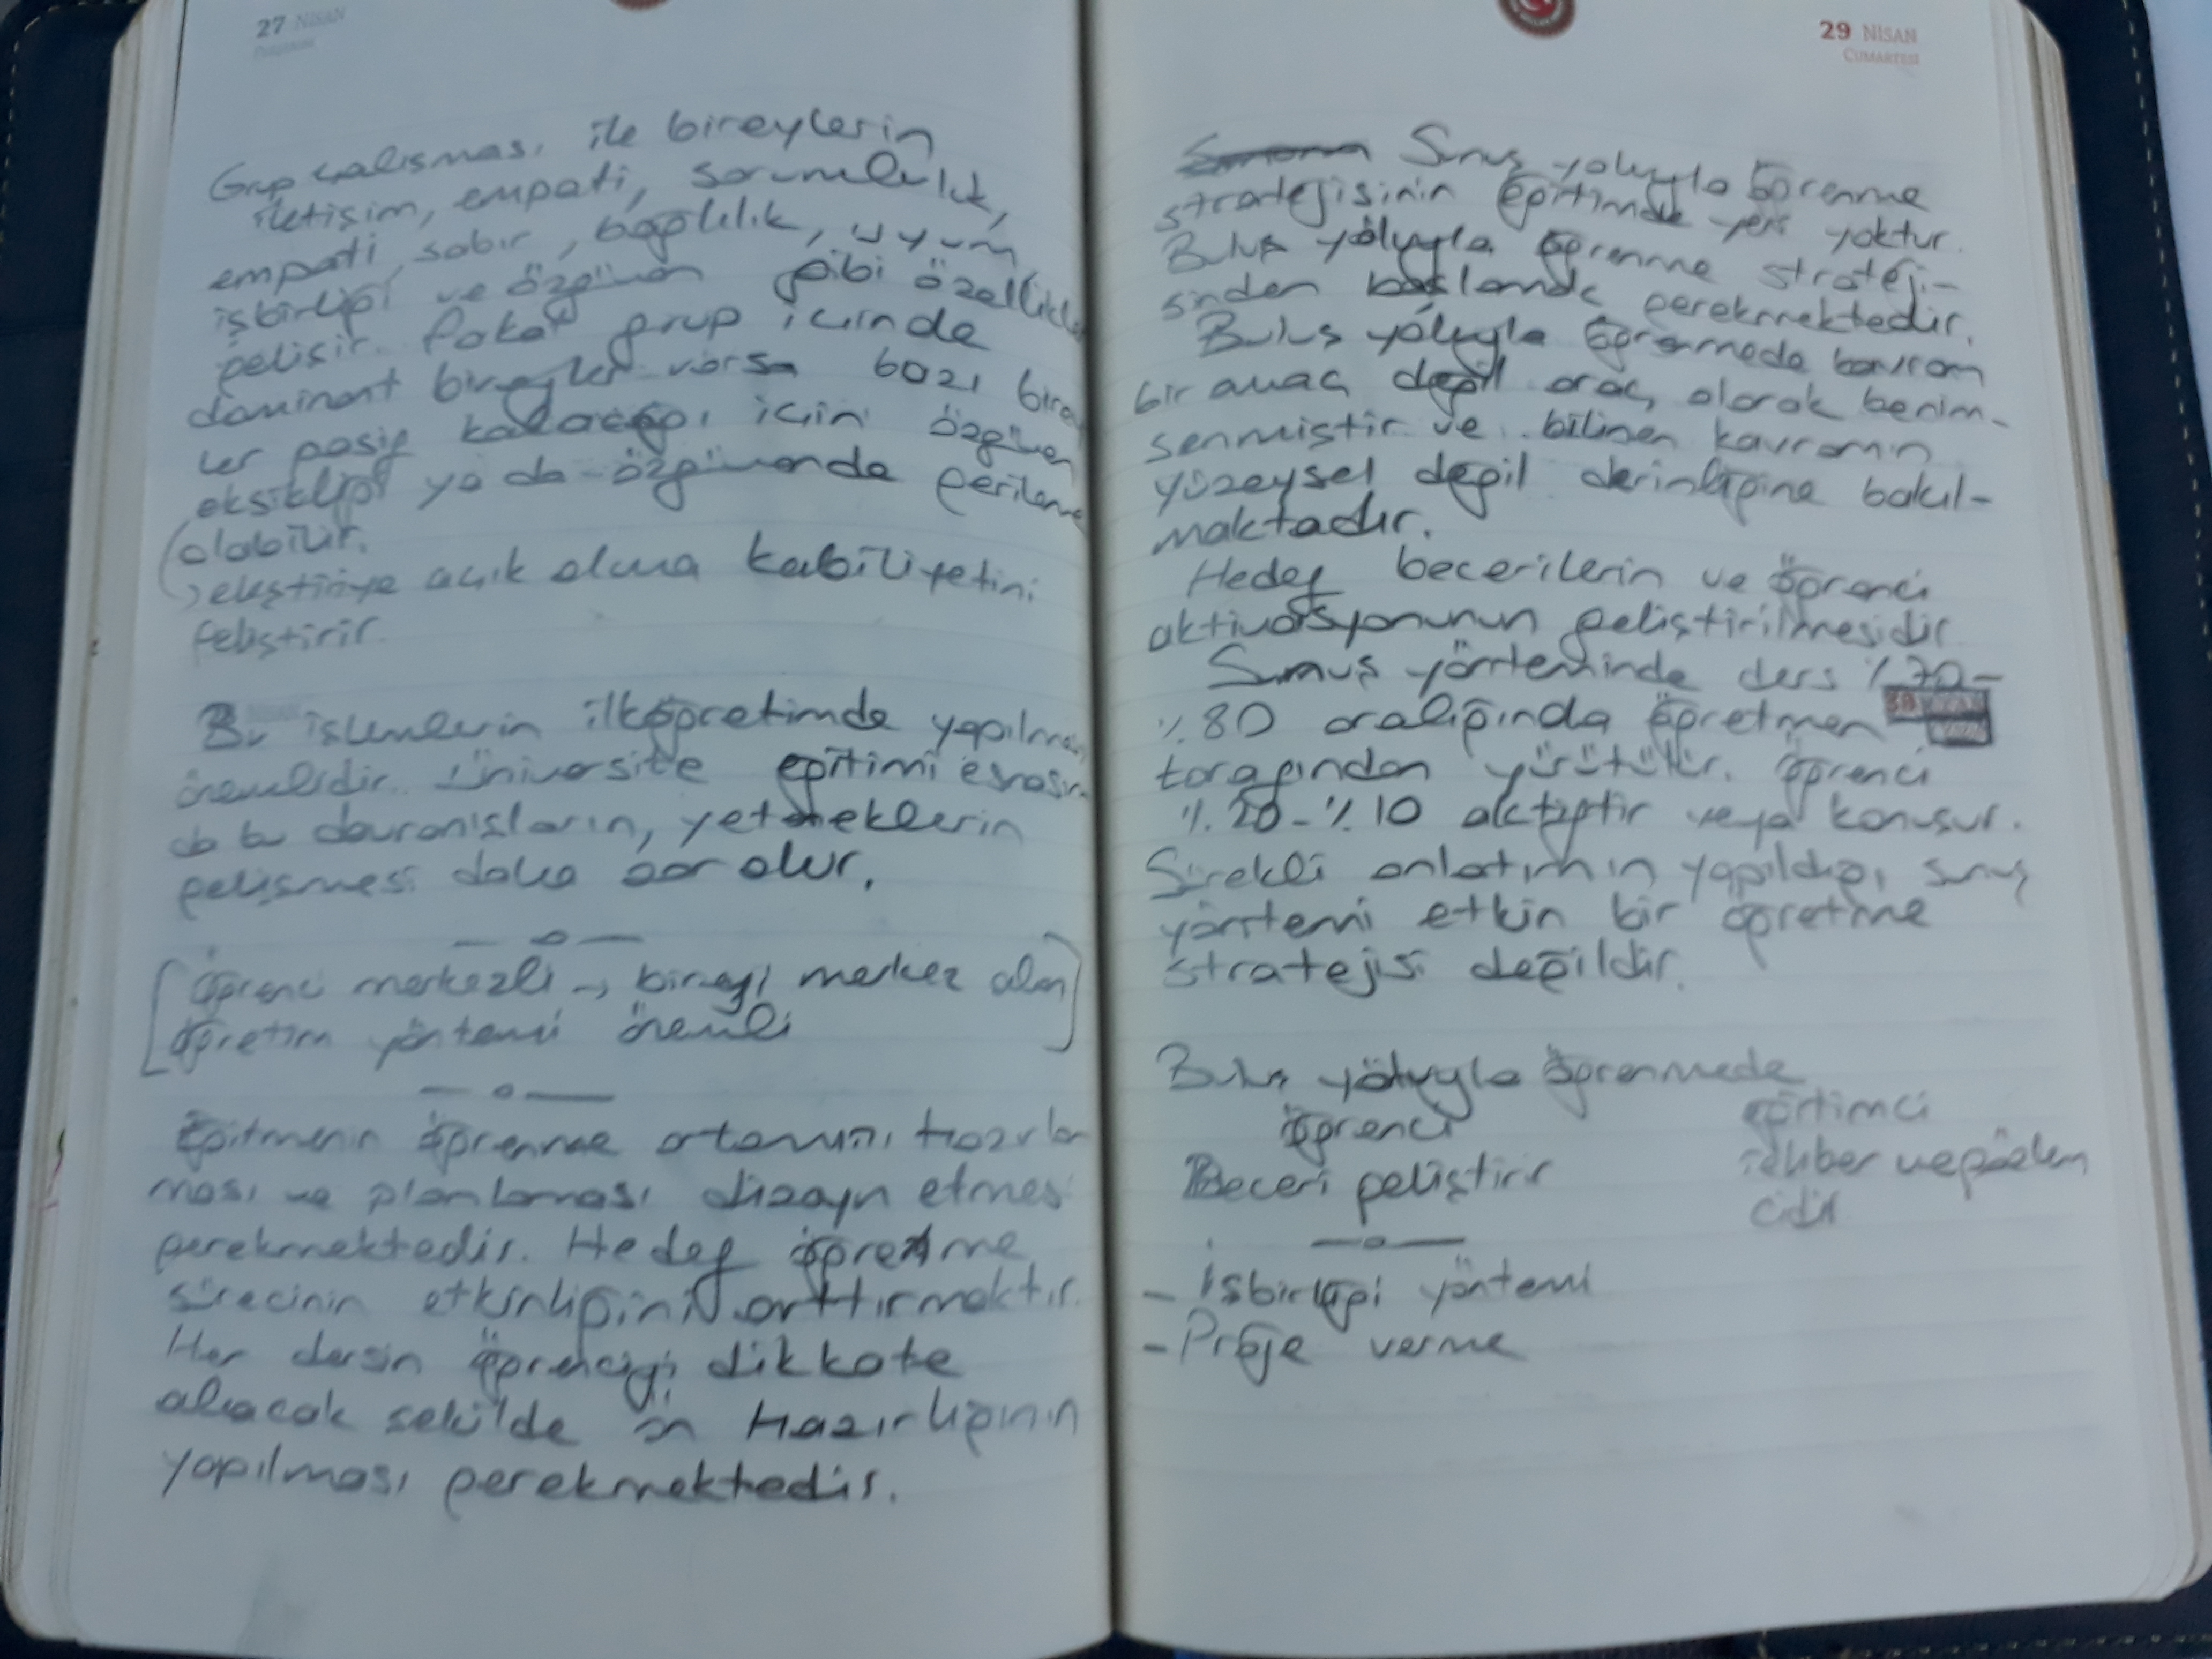 27 NİSAN
Grup çalışması ile bireylerin
iletişim, empati, sorumluluk,
empati, sabır, bağlılık, uyum
işbirliği ve özgüven gibi özellikle
gelişir. Fakat grup içinde
dominant bireyler varsa bazı birey
ler pasif kalacağı için özgüven
eksikliği ya da özgüvende gerileme
olabilir.
eleştiriye açık olma kabiliyetini
geliştirir.
Bu işlemlerin ilköğretimde yapılması
önemlidir. Üniversite eğitimi esnasın
da bu davranışların, yeteneklerin
gelişmesi daha zor olur.
[Öğrenci merkezli → bireyi merkez alan
öğretim yöntemi önemli]
Eğitmenin öğrenme ortamını hazırla
ması ve planlaması dizayn etmesi
gerekmektedir. Hedef öğretme
sürecinin etkinliğini arttırmaktır.
Her dersin öğrenciyi dikkate
alacak şekilde ön hazırlığının
yapılması gerekmektedir.
29 NİSAN
CUMARTESİ
Sunuş yoluyla öğrenme
stratejisinin eğitimde yeri yoktur.
Buluş yoluyla öğrenme strateji-
sinden başlamak gerekmektedir.
Buluş yoluyla öğrenmede kavram
bir amaç değil araç olarak benim-
senmiştir ve bilinen kavramın
yüzeysel değil derinliğine bakıl-
maktadır.
Hedef becerilerin ve öğrenci
aktivasyonunun geliştirilmesidir
Sunuş yönteminde ders %70-
%80 aralığında öğretmen
tarafından yürütülür. Öğrenci
%20-%10 aktiftir veya konuşur.
Sürekli anlatımın yapıldığı sunuş
yöntemi etkin bir öğretme
stratejisi değildir.
Buluş yoluyla öğrenmede
öğrenci eğitimci
Beceri geliştirir rehber ve gözlem
cidir
- İşbirliği yöntemi
- Proje verme